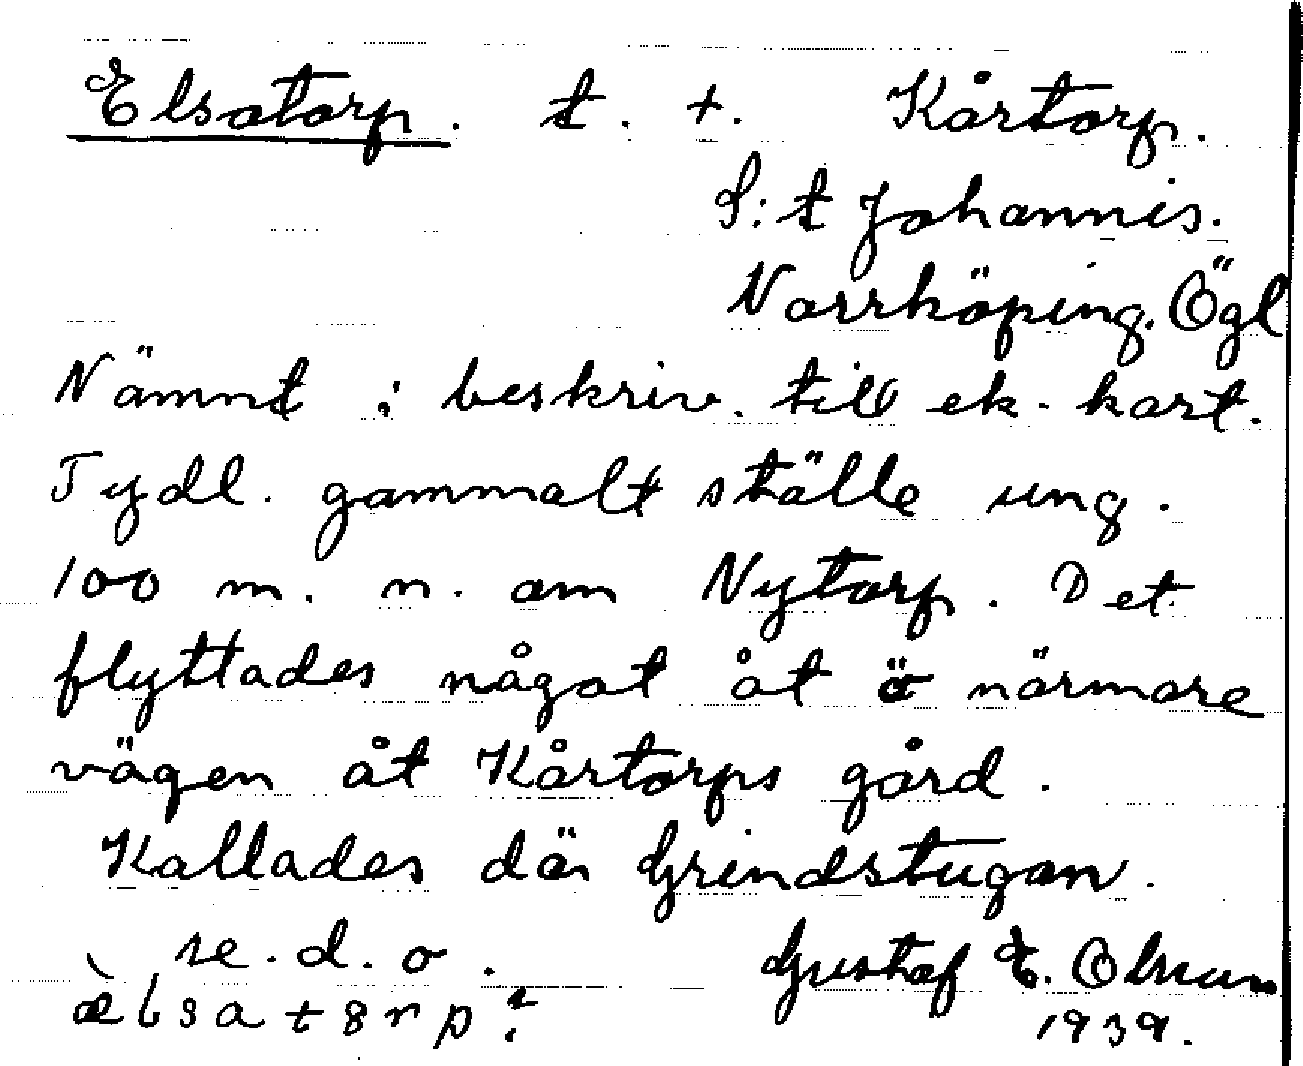 Elsatorp. t. +. Kårtorp.
S:t Johannis.
Norrköping. Ögl
Nämnt i beskriv. till ek. kart.
Tydl. gammalt ställe ung.
100 m. n. om Nytorp. Det
flyttades något åt ö närmare
vägen åt Kårtorps gård.
Kallades där Grindstugan.
se. d. o. Gustaf E. Olsson
1939.